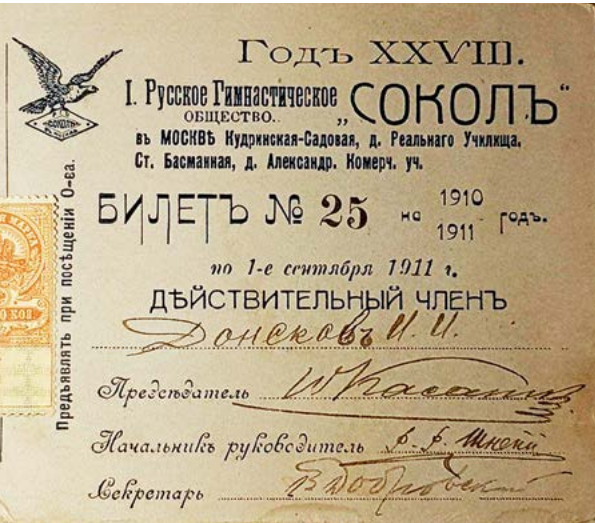 Годъ XXVIII.
I. Русское Гимнастическое
ОБЩЕСТВО..
„СОКОЛЪ“
въ МОСКВѢ Кудринская-Садовая, д. Реальнаго Училища.
Ст. Басманная, д. Александр. Комерч. уч.
БИЛЕТЪ № 25 на 1910 1911 годъ.
по 1-е сентября 1911 г.
ДѢЙСТВИТЕЛЬНЫЙ ЧЛЕНЪ
Донсковъ И. И.
Предсѣдатель
Начальникъ руководитель
Секретарь
Предъявлять при посѣщеніи О-ва.
СОКОЛЪ